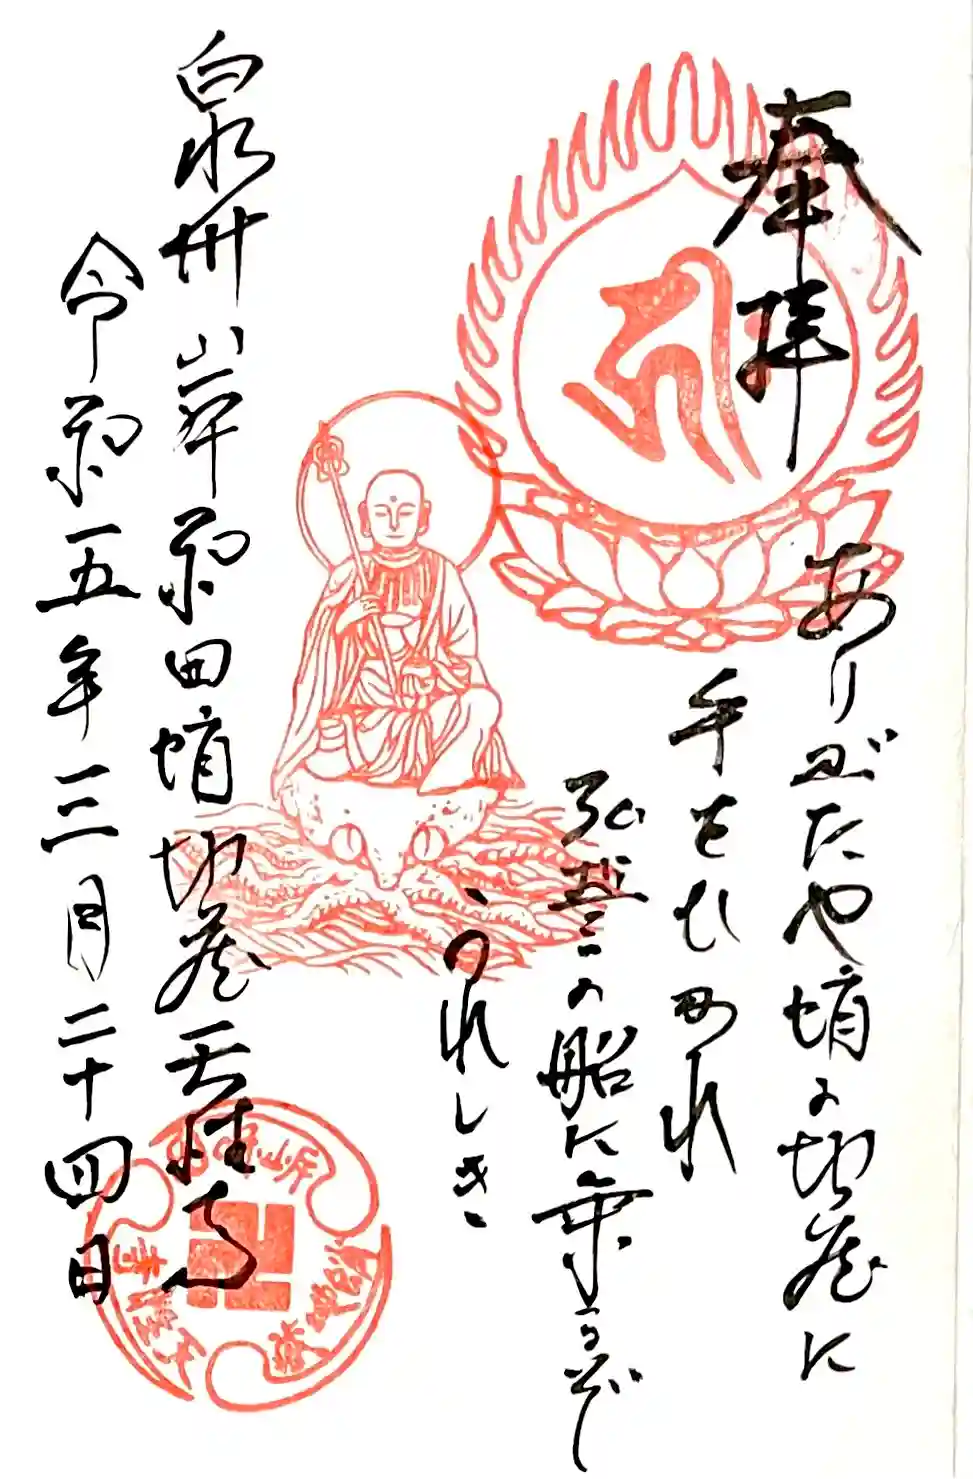 奉拝
ありがたや蛸の地蔵に
手をひかれ
弘誓の船に乗るぞ
うれしき
泉州岸和田蛸地蔵天性寺
令和五年三月二十四日